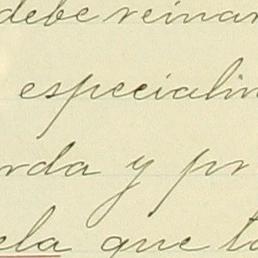 debe reinar
especialm
rda y pr
ela que to